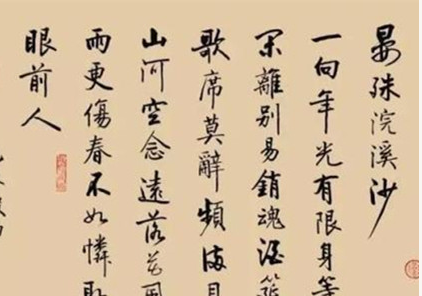 晏殊浣溪沙
一向年光有限身等
闲離别易銷魂酒筵
歌席莫辭頻满目
山河空念遠落花風
雨更傷春不如憐取
眼前人